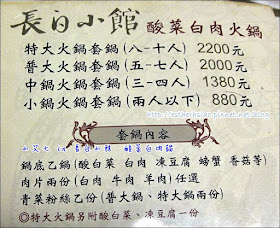 長白小館 酸菜白肉火鍋
特大火鍋套鍋(八-十人) 2200元
普大火鍋套鍋(五-七人) 2000元
中火鍋套鍋(三-四人) 1380元
小鍋火鍋套鍋(兩人以下) 880元
套鍋內容
鍋底乙鍋(酸白菜 白肉 凍豆腐 螃蟹 香菇等)
肉片兩份(白肉 牛肉 羊肉)任選
青菜粉絲乙份(普大鍋、特大鍋兩份)
◎特大火鍋另附酸白菜、凍豆腐一份